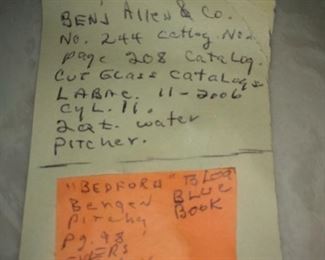 BENJ Allen & Co.
No. 244 Catlog No.
page 208 Catalog.
Cut Glass Catalog
LABAC. 11-2006
Cyl. 11.
2 qt. water
pitcher.
"BEDFORD" TO LOG
Bergen BLUE
Pitcher BOOK
pg. 98